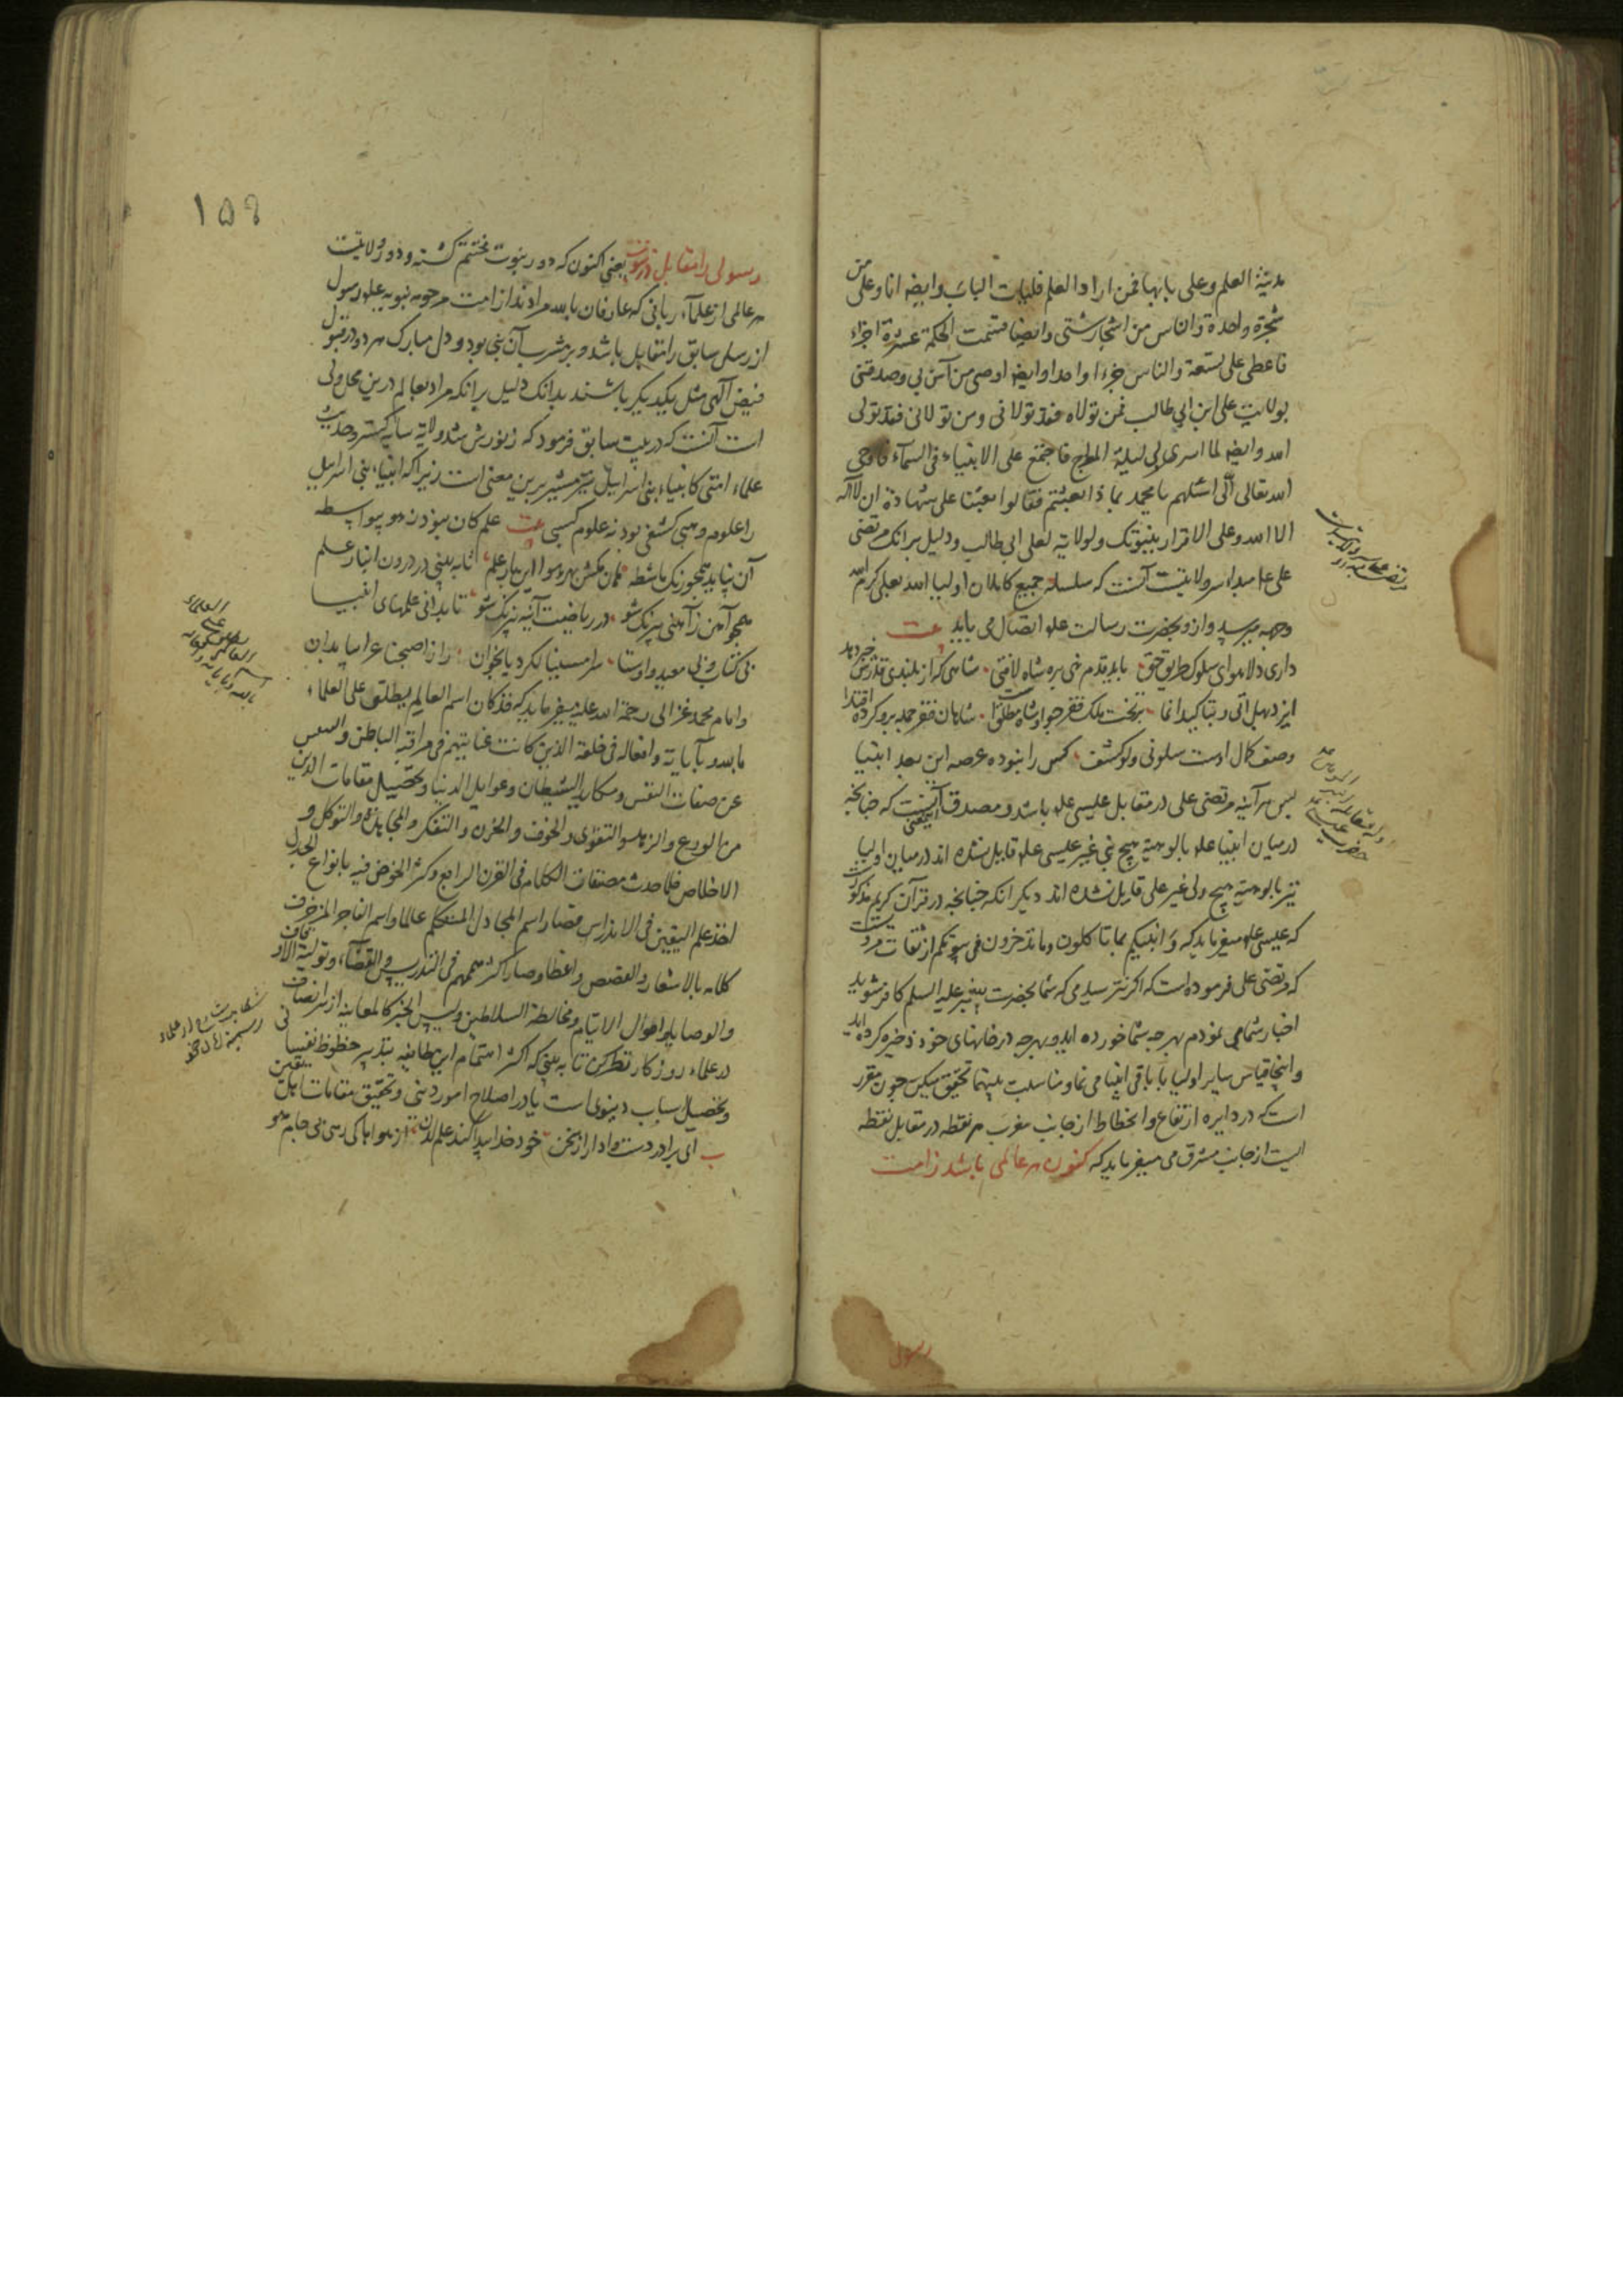 مدینة العلم وعلی بابها فمن اراد العلم فلیات الباب وایضه انا وعلی من
شجرة واحدة والناس من اشجار شتی وایضا قسمت الحکمة عشرة اجزاء
فاعطی علی تسعة والناس جزءا واحدا وایضه اوصی من آمن بی وصدقنی
بولایت علی ابن ابی طالب فمن تولاه فقد تولانی ومن تولانی فقد تولی
الله وایضه لما اسری بی لیلة المعراج فاجتمع علی الانبیاء فی السمآء فاوحی
الله تعالی الی اسئلهم یا محمد بما ذا بعثتم فقالوا بعثنا علی شهادة ان لا اله
الا الله وعلی الاقرار بنبوتک ولولایة لعلی ابی طالب ودلیل برانک مرتضی
علی علم مبداء سر ولایتست آنست که سلسله جمیع کاملان اولیا الله بعلی کرم الله
وجهه میرسد وازو بحضرت رسالت علم اتصال می یابد
داری دلا هوای سلوک طریق حق باید قدم نهی بره شاه لافتی شاهی که از بلندی قدرش خبر دهد
ایزد بهل اتی و بتاکید انما بر تخت ملک فقر جو او شاه مطلق است شاهان فقر جمله برو کرده اقتدا
وصف کمال اوست سلونی ولو کشف کس را نبوده عرصه این بعد انبیا
پس هر آینه مرتضی علی در مقابل عیسی علم باشد ومصدق اینمعنی آنست که چنانچه
در میان انبیا علم بالوهیة هیچ نبی غیر عیسی علم قایل نشده اند در میان اولیا
نیز بالوهیة هیچ ولی غیر علی قایل نشده اند دیگر انکه چنانچه در قرآن کریم مذکور
که عیسی علم میفرماید که وَ انبئکم بما تاکلون وما تدخرون فی بیوتکم از ثقات مرویست
که مرتضی علی فرموده است که اگر نترسیدمی که شما بحضرت پیغمبر علیه السلم کافر شوید
اخبار شما می نمودم بهر چه شما خورده اید وبهر چه در خانهای خود ذخیره کرده اید
وانجا قیاس سایر اولیا با باقی انبیا می نما ومناسبت بینهما تحقیق میکن چون مقرر
است که در دایره ارتفاع وانحطاط از جانب مغرب هر نقطه در مقابل نقطه
ایست از جانب مشرق می میفرماید که کنون هر عالمی باشد ز امت
رسول
۱۵۹
رسولی را مقابل در نبوت یعنی اکنون که دور نبوت مختتم گشته ودور ولایتست
هر عالمی از علمآء ربانی که عارفان بالله مرادند از امت مرحومه نبویه علم رسول
از رسل سابق را مقابل باشد وبر مشرب آن نبی بود ودل مبارک هر دو در قبول
فیض الهی مثل یکدیگر باشند بدانک دلیل برانکه مراد بعالم درین محل ولی
است آنست که در بیت سابق فرمود که ز نورش شد ولایة سایه گستر وحدیث
علماء امتی کانبیاء بنی اسرائیل نیز مشیر برین معنی است زیرا که انبیاء بنی اسرائیل
را علوم وهبی کشفی بود نه علوم کسبی علم کان نبود ز هو بیواسطه
آن نپاید همچو رنک ماشطه هان مکش بهر هوا این بار علم تا به بینی در درون انبار علم
همچو آهن ز آهنی بیرنک شو در ریاضت آینه بی زنک شو تا بدانی علمهای انبیا
بی کتاب وبی معید واوستا سر امسینا لکردیا بخوان راز اصبحنا عرابیا بدان
وامام محمد غزالی رحمة الله علیه میفرماید که فقد کان اسم العالم یطلق علی العلماء
بالله وبآیاته وافعاله فی خلقه الذین کانت عنایتهم فی مراقبة الباطن و
عن صفات النفس ومکاید الشیطان وعوایل الدنیا وتحصیل مقامات الدین
من الورع والزهد والتقوی والخوف والحزن والتفکر والمجاهدة والتوکل و
الاخلاص فلما حدث مصنفات الکلام فی القرن الرابع وکثر الخوض فیه بانواع الجدل
اخذ علم الیقین فی الاندراس فصار اسم المجادل المتکلم عالما واسم الفاجر المزخرف
کلامه بالاشعار والقصص واعظا وصار اکثر همهم فی التدریس والقضآء وتولیة الاوقاف
والوصایا واموال الایتام ومخالطة السلاطین ولیس الخبر کالمعاینه از سر انصاف
در علماء روزکار نظر کن تا به بینی که اکثر اهتمام این طایفه بتدبیر حظوظ نفسانی
وتحصیل اسباب دنیوی است یا در اصلاح امور دینی وتحقیق مقامات یقین
ای برادر دست وادار از سخن خود خدا پیدا کند علم لدن از هوا پاکی رسی بی جام هو